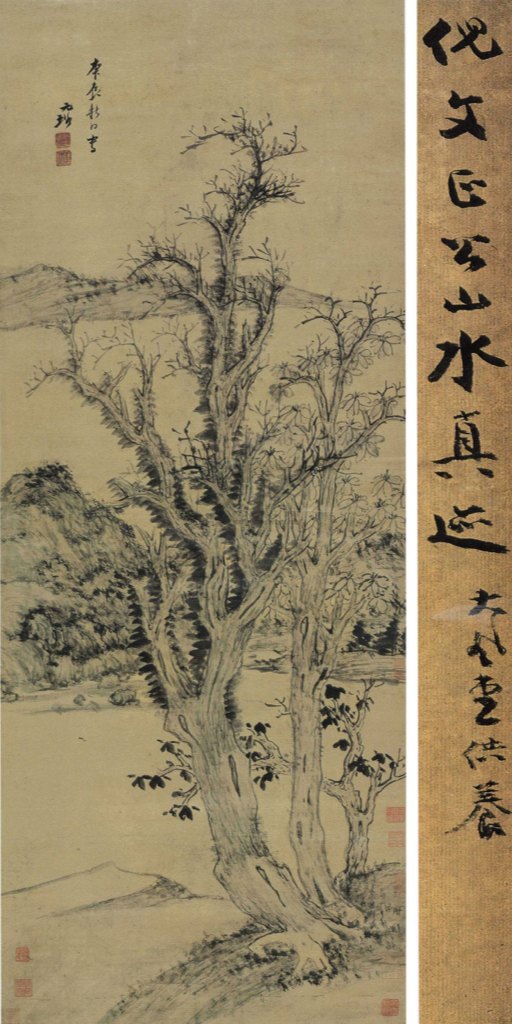 倪文正公山水真迹 大風堂供養
庚辰秋日寫
元璐